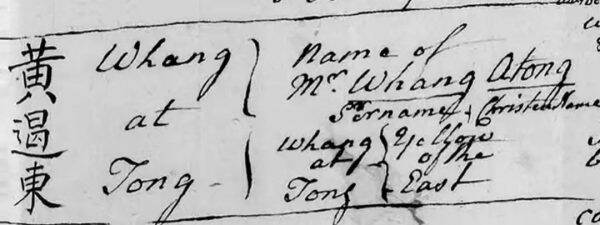 黃遏東
Whang
at
Tong
Name of
Mr. Whang Atong
Sirname, Christen Name
Whang Yellow
at of the
Tong East